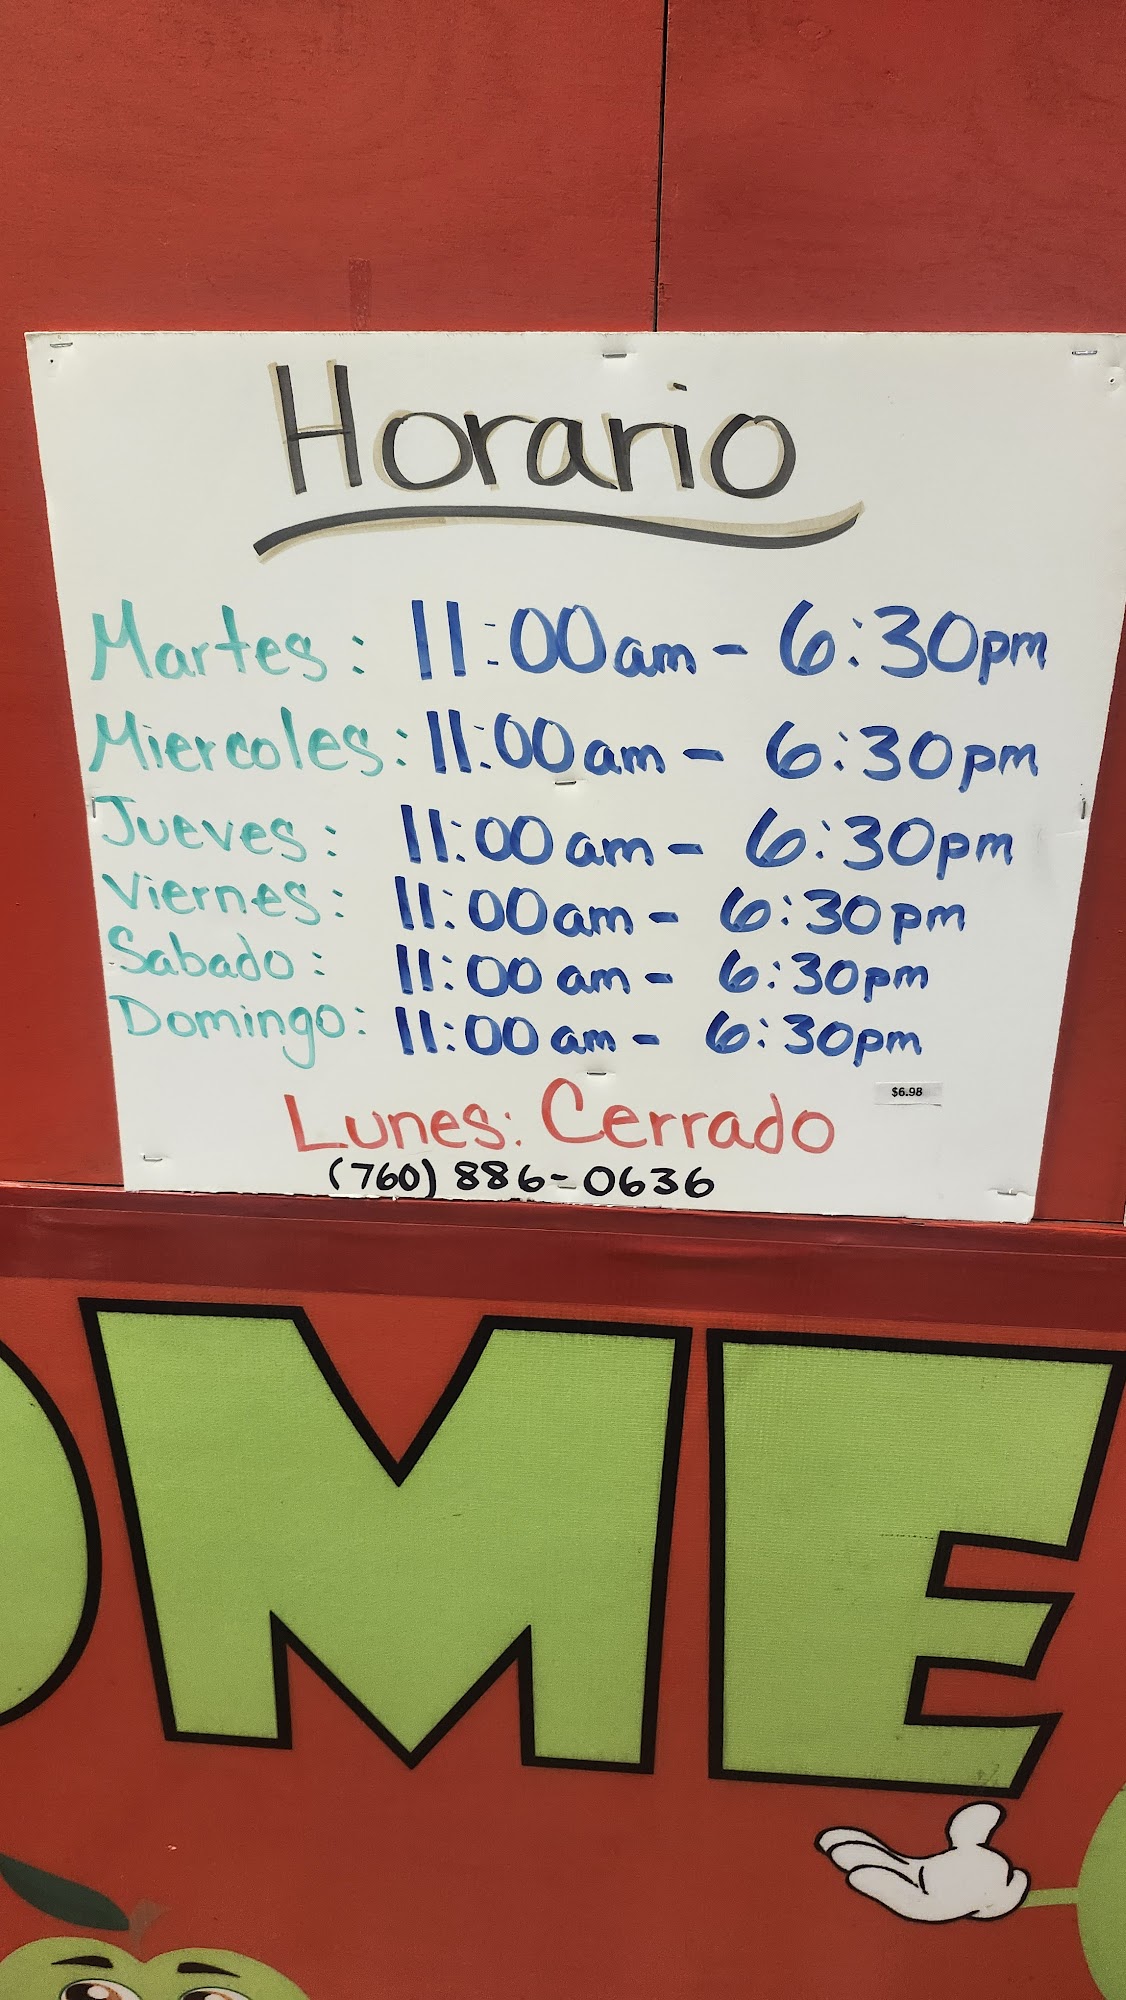 Horario
Martes: 11:00am - 6:30pm
Miercoles: 11:00am - 6:30pm
Jueves: 11:00am - 6:30pm
Viernes: 11:00am - 6:30pm
Sabado: 11:00am - 6:30pm
Domingo: 11:00am - 6:30pm
$6.98
Lunes: Cerrado
(760) 886-0636
OME